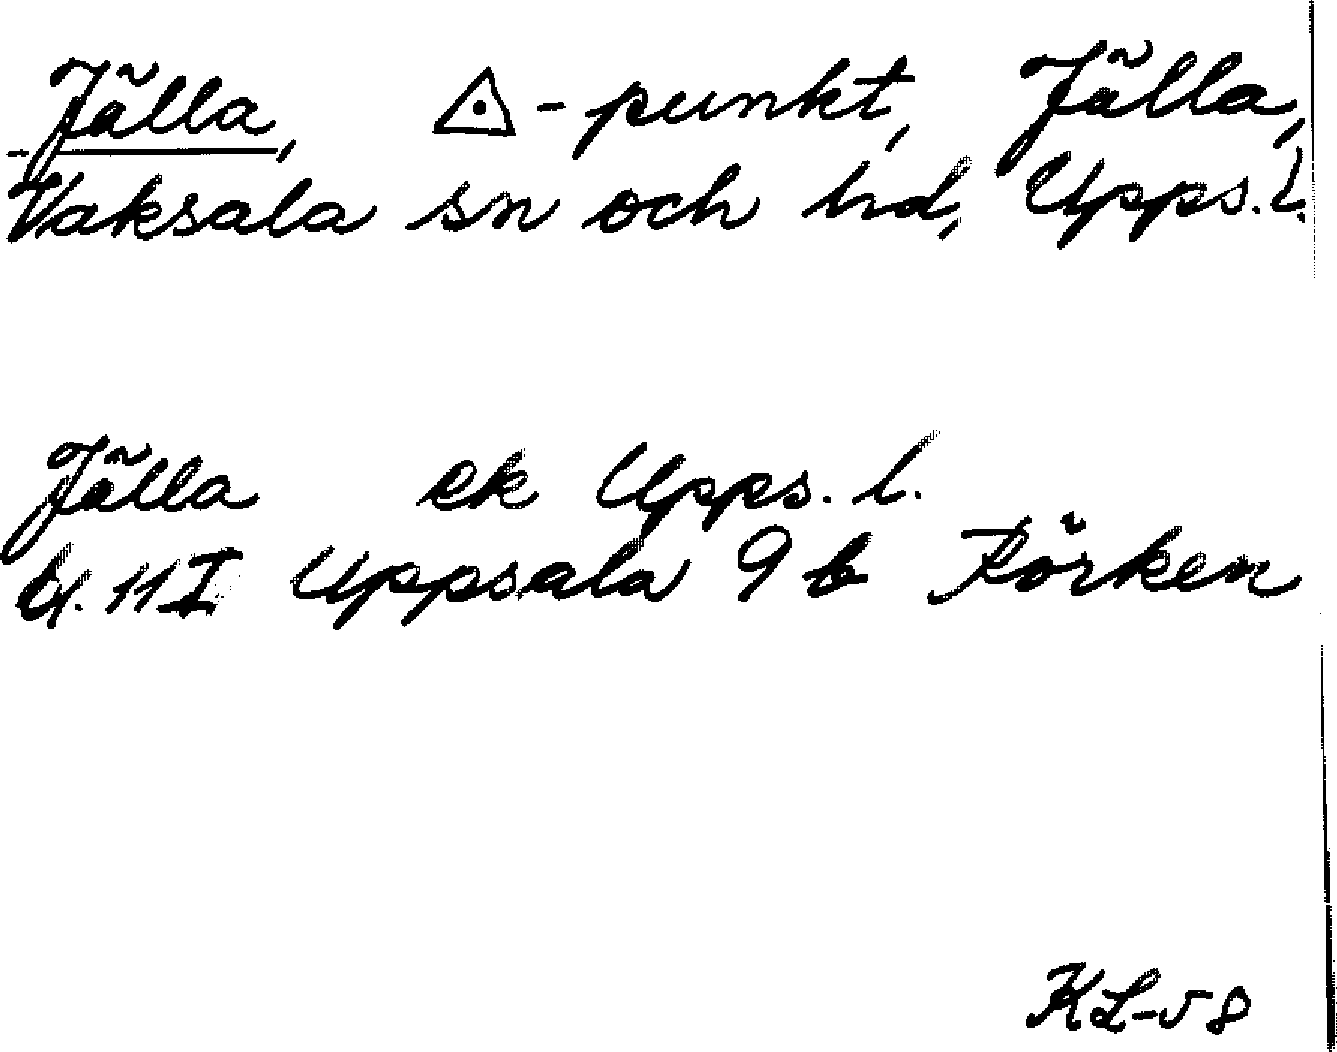 Jälla, △-punkt, Jälla,
Vaksala sn och hd, Upps. l.
Jälla ek Upps. l.
bl. 11 I Uppsala 9 b Rörken
KL-58